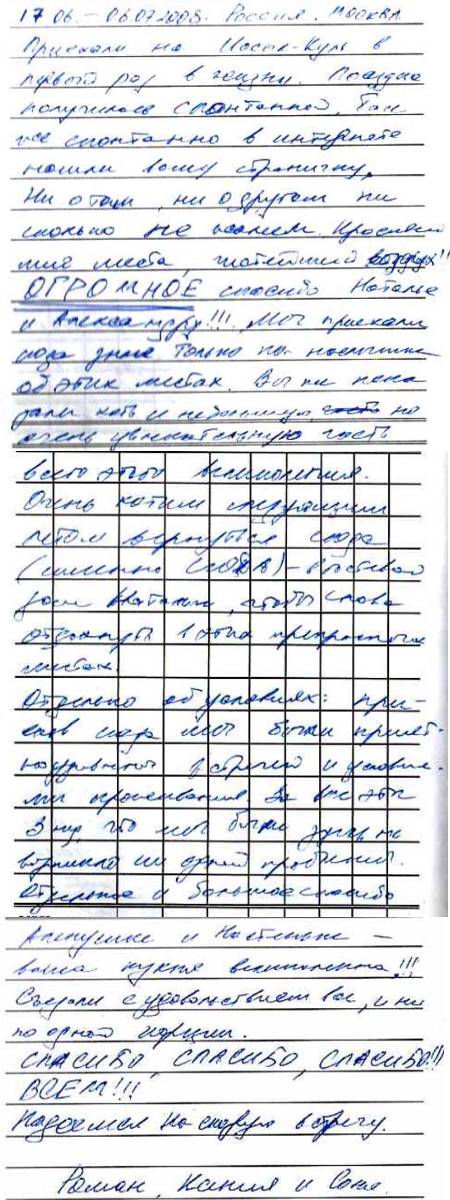 17 06. - 06 07 2008. Россия. Москва
Приехали на Иссык-Куль в
первый раз в жизни. Поездка
получилась спонтанной. Так
же спонтанно в интернете
нашли вашу страничку.
Ни о том, ни о другом ни
сколько не жалеем. Красивей
шие места, чистейший воздух!!
ОГРОМНОЕ спасибо Наталье
и Александру!!! Мы приехали
сюда зная только по наслышке
об этих местах. Вы пока
зали хоть и небольшую, часть но
очень увлекательную часть
всего этого великолепия.
Очень хотим следующим
летом вернуться сюда
(именно СЮДА) - гостевой
дом Натальи, чтобы снова
отдохнуть в этих прекрасных
местах.
Отдельно об условиях: при-
ехав сюда мы были прият-
но удивлены встречей и условия-
ми проживания. За все эти
3 нед что мы были здесь не
возникло ни одной проблемы.
Отдельное и большое спасибо
и Настеньке -
ваша кухня великолепна!!!
Съедали с удовольствием все, и ни
по одной порции.
СПАСИБО, СПАСИБО, СПАСИБО!!!
ВСЕМ!!!
Надеемся на скорую встречу.
Роман, Ксения и Соня.